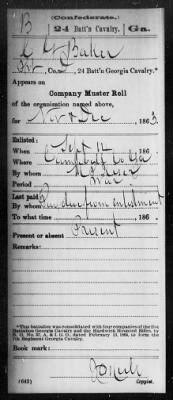 (Confederate.)
B 24 Batt'n Cavalry. Ga.
Baker
Co., 24 Batt'n Georgia Cavalry.*
Appears on
Company Muster Roll
of the organization named above,
for Nov & Dec, 186 3.
Enlisted:
When Sept 12, 186
Where Campbell Co Ga
By whom
Period War
Last paid:
By whom Pay due from enlistment
To what time, 186 .
Present or absent Present
Remarks:
*This battalion was consolidated with four companies of the
Georgia Cavalry and the Hardwick Mounted Rifles, by
S. O. No. 37, A. & I. G. O., dated February 13, 1864, to form the
7th Regiment Georgia Cavalry.
Book mark:
(642)
Copyist.